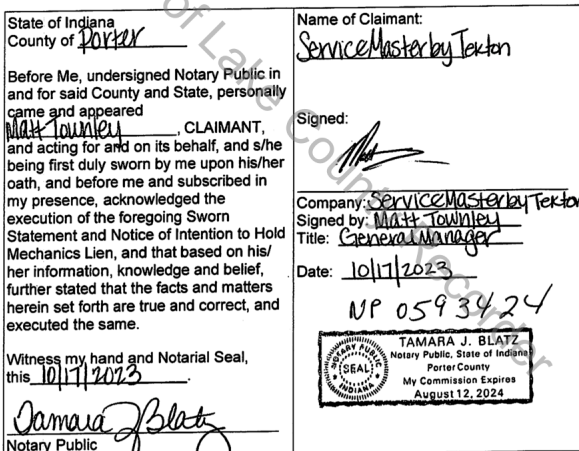 State of Indiana
County of Porter
Before Me, undersigned Notary Public in
and for said County and State, personally
came and appeared
Matt Townley, CLAIMANT,
and acting for and on its behalf, and s/he
being first duly sworn by me upon his/her
oath, and before me and subscribed in
my presence, acknowledged the
execution of the foregoing Sworn
Statement and Notice of Intention to Hold
Mechanics Lien, and that based on his/
her information, knowledge and belief,
further stated that the facts and matters
herein set forth are true and correct, and
executed the same.
Witness my hand and Notarial Seal,
this 10/17/2023.
Tamara J Blatz
Notary Public
Name of Claimant:
ServiceMaster by Tekton
Signed:
Company: ServiceMaster by Tekton
Signed by: Matt Townley
Title: General Manager
Date: 10/17/2023
NP 0593424
NOTARY PUBLIC
SEAL
INDIANA
TAMARA J. BLATZ
Notary Public, State of Indiana
Porter County
My Commission Expires
August 12, 2024
of Lake County Recorder